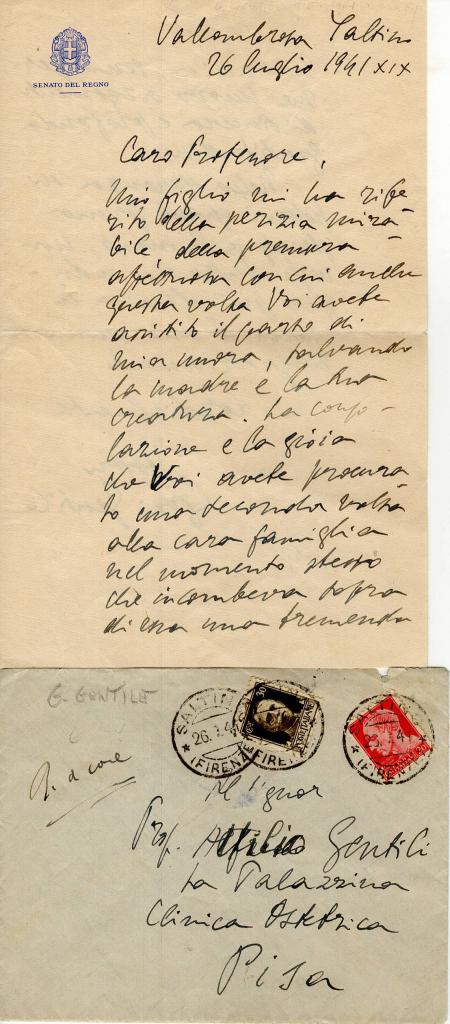 SENATO DEL REGNO
Vallombrosa Saltino
26 luglio 1941 XIX
Caro Professore,
Mio figlio mi ha rife-
rito della perizia mira-
bile, della premura
affettuosa con cui anche
questa volta Voi avete
assistito il parto di
mia nuora, salvando
la madre e la sua
creatura. La conso-
lazione e la gioia
che Voi avete procura-
to una seconda volta
alla cara famiglia
nel momento stesso
che incombeva sopra
di essa una tremenda
G. GENTILE
SALTINO
26.7.4
(FIRENZE)
30
SALTINO
(FIRENZE)
20
Al Signor
Prof. Gentili
La Palazzina
Clinica Ostetrica
Pisa